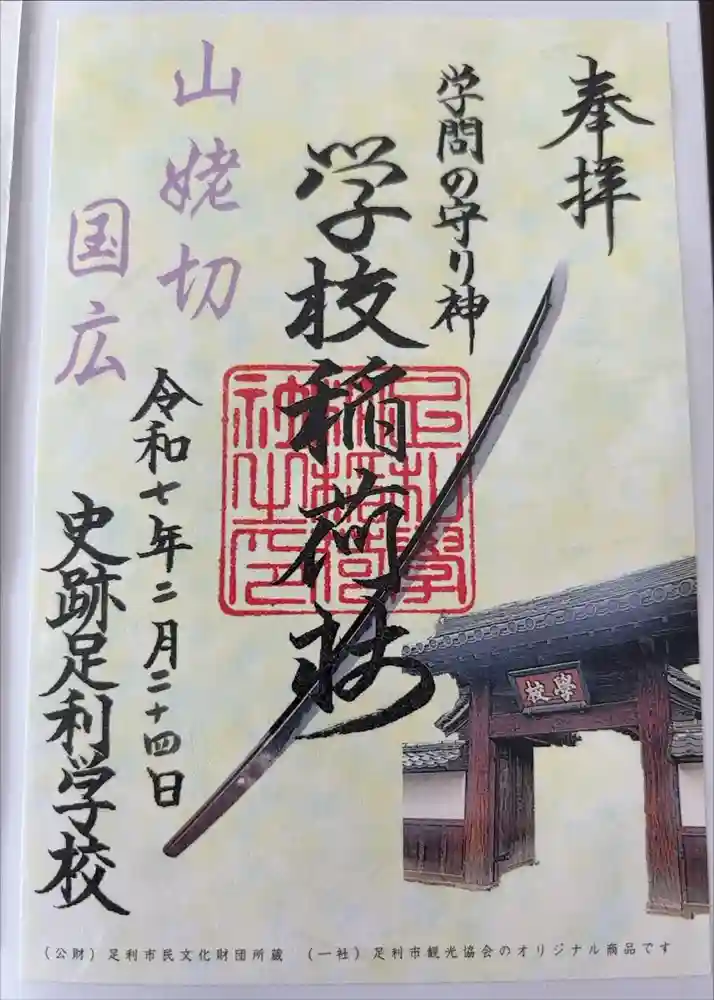 奉拝
学問の守り神
学校稲荷社
山姥切
国広
令和七年二月二十四日
史跡足利学校
學校
（公財）足利市民文化財団所蔵　（一社）足利市観光協会のオリジナル商品です